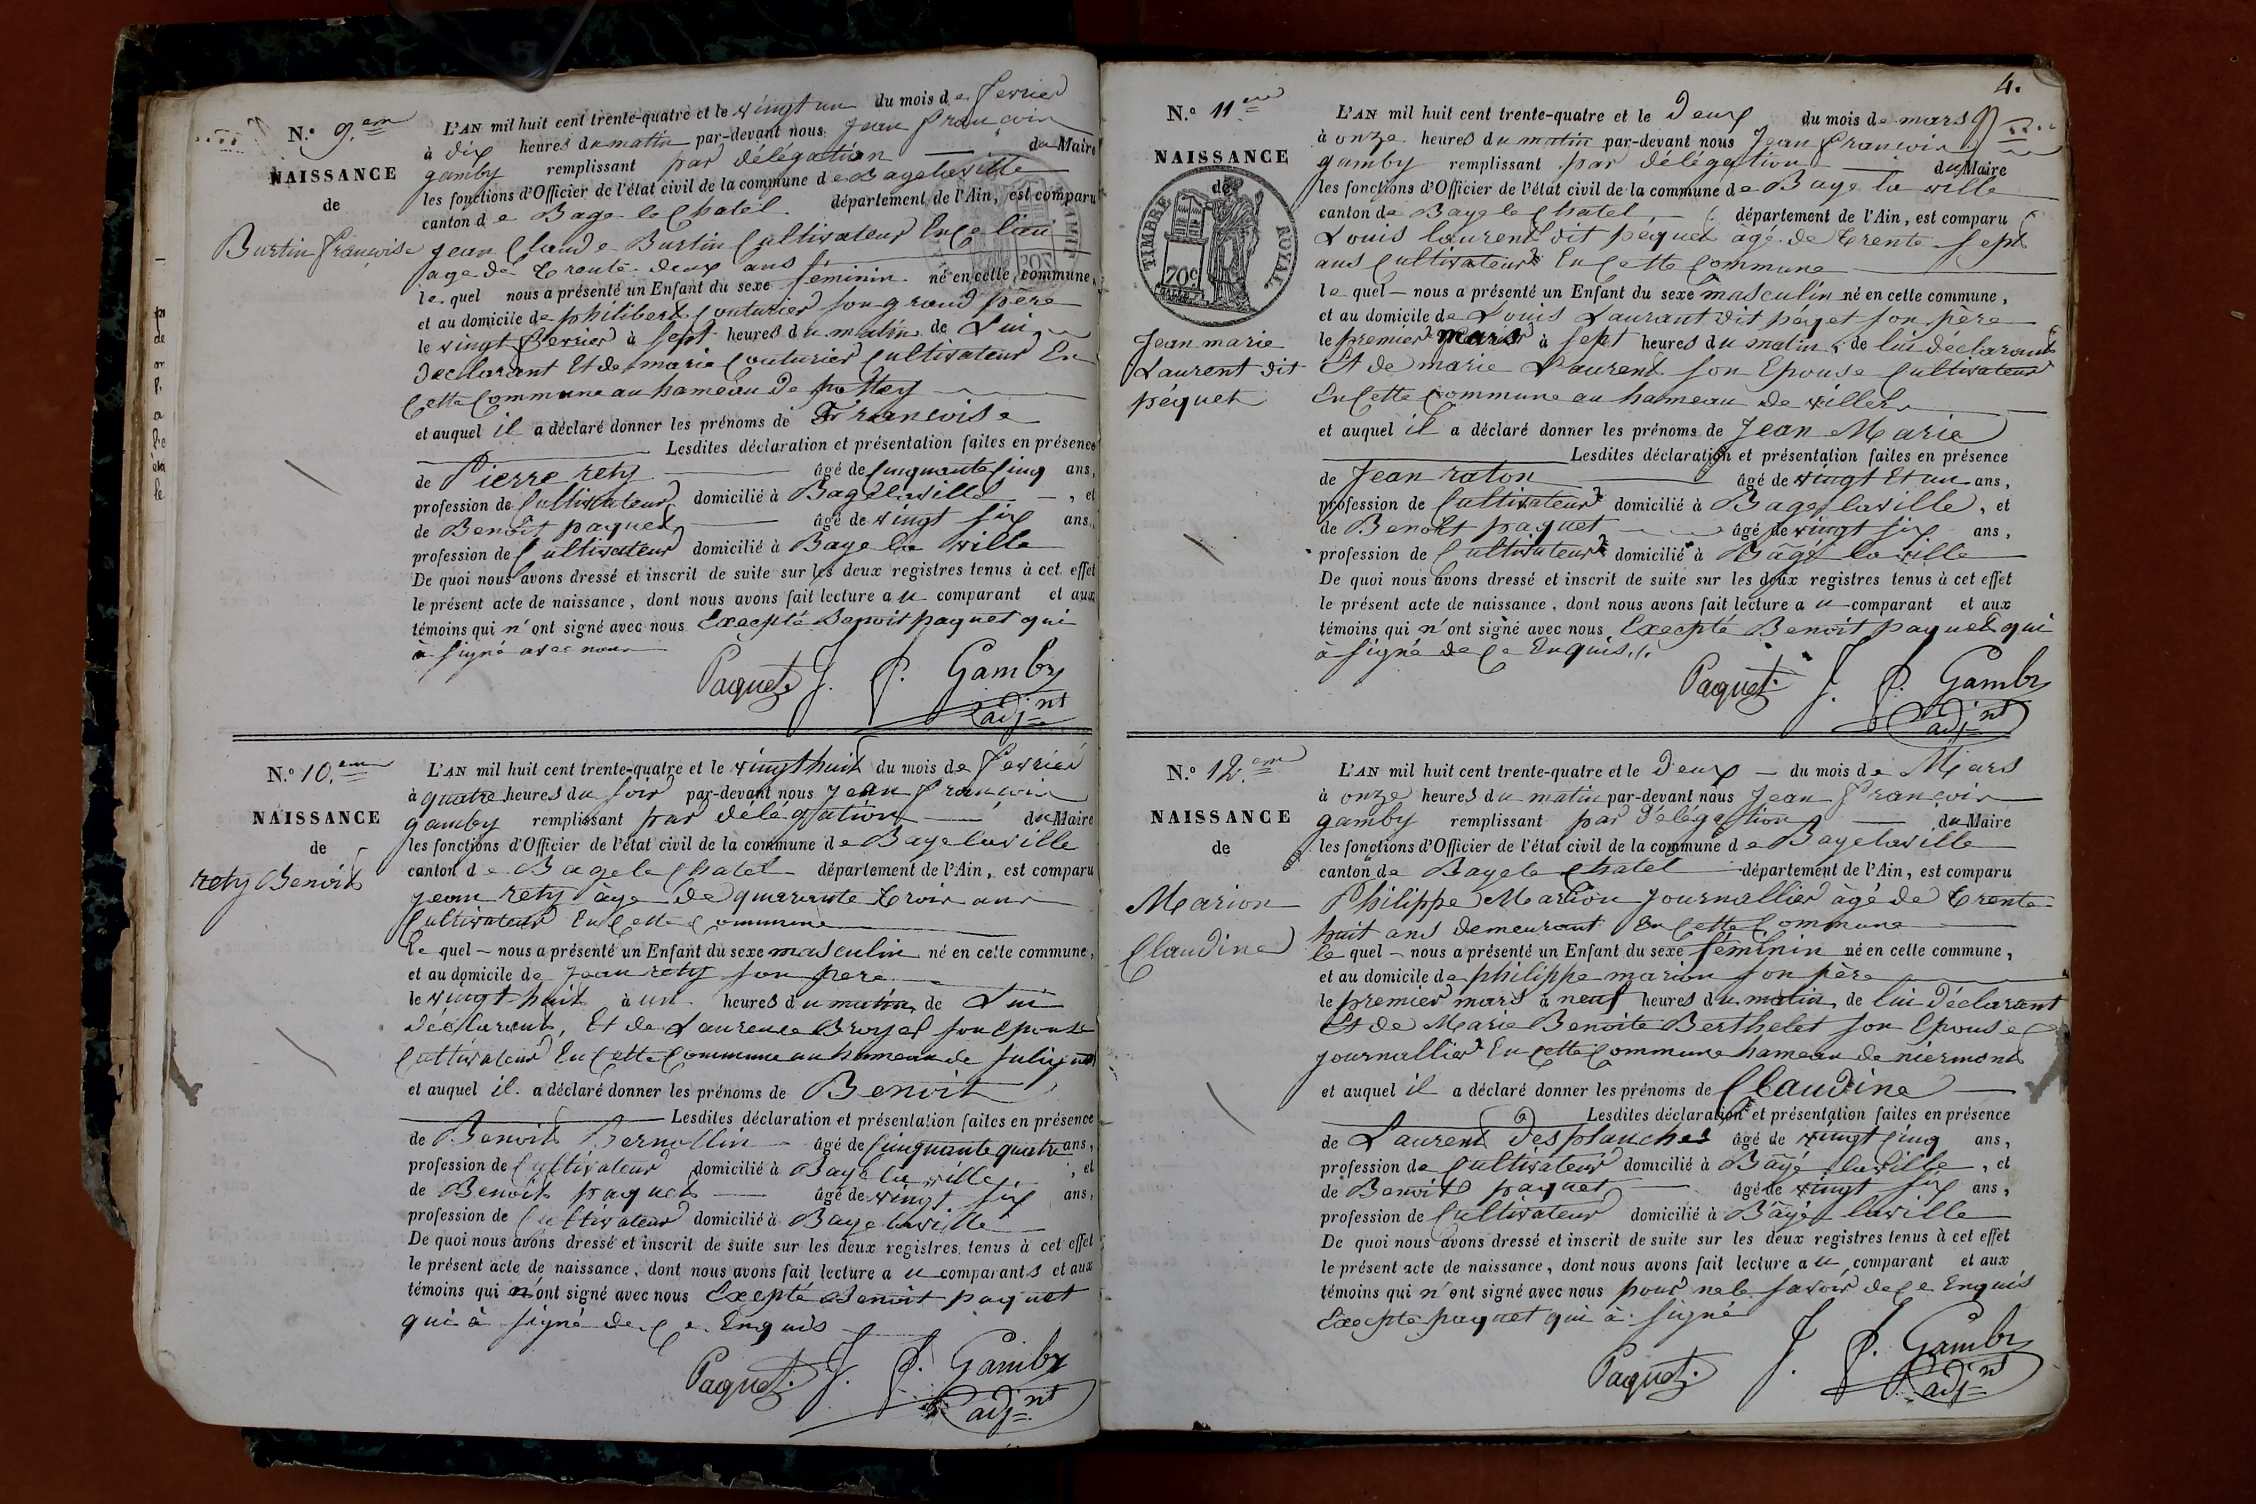 N.° 9.em
NAISSANCE
de
Burtin françoise
L'AN mil huit cent trente-quatre et le vingt un du mois de fevrier
à dix heures du matin par-devant nous Jean françois
gamby remplissant par délégation du Maire
les fonctions d'Officier de l'état civil de la commune de Bagelaville
canton de Bage le Chatel département de l'Ain, est comparu
jean Claude Burtin Cultivateur En Ce lieu
age de trente deux ans
le quel nous a présenté un Enfant du sexe féminin né en cette commune,
et au domicile de philibert Couturier son grand père
le vingt fevrier à sept heures du matin de Lui
Declarant Et de marie Couturier Cultivateur En
Cette Commune au hameau de
et auquel il a déclaré donner les prénoms de Francoise
Lesdites déclaration et présentation faites en présence
de Pierre rety âgé de Cinquante Cinq ans,
profession de Cultivateur domicilié à Bagelaville, et
de Benoît paquet âgé de vingt six ans,
profession de Cultivateur domicilié à Bage la ville
De quoi nous avons dressé et inscrit de suite sur les deux registres tenus à cet effet
le présent acte de naissance, dont nous avons fait lecture au comparant et aux
témoins qui n'ont signé avec nous Excepté Benoit paquet qui
a signé avec nous
Paquet J. f. Gamby
adj.nt
N.° 10.em
NAISSANCE
de
rety Benoit
L'AN mil huit cent trente-quatre et le vingt huit du mois de fevrier
à quatre heures du soir par-devant nous Jean françois
gamby remplissant par délégation du Maire
les fonctions d'Officier de l'état civil de la commune de Bagelaville
canton de Bage le Chatel département de l'Ain, est comparu
jean rety âge de quarante trois ans
Cultivateur En Cette Commune
le quel nous a présenté un Enfant du sexe masculin né en cette commune,
et au domicile de Jean rety son pere
le vingt huit à un heures du matin de Lui
déclarant, Et de Laurence Broyer son Epouse
Cultivateur En Cette Commune au hameau de
et auquel il a déclaré donner les prénoms de Benoit
Lesdites déclaration et présentation faites en présence
de Benoit Bernollin âgé de Cinquante quatre ans,
profession de Cultivateur domicilié à Bage la ville, et
de Benoit paquet âgé de vingt six ans,
profession de Cultivateur domicilié à Bagelaville
De quoi nous avons dressé et inscrit de suite sur les deux registres tenus à cet effet
le présent acte de naissance, dont nous avons fait lecture au comparants et aux
témoins qui n'ont signé avec nous Excepté Benoit paquet
qui à signé de Ce Enquis
Paquet. J. f. Gamby
adj.nt
4.
N.° 11.eme
NAISSANCE
de
TIMBRE ROYAL
70c
Jean marie
Laurent dit
péquet
L'AN mil huit cent trente-quatre et le Deux du mois de mars
à onze heures du matin par-devant nous Jean françois
gamby remplissant par délégation du Maire
les fonctions d'Officier de l'état civil de la commune de Bage la ville
canton de Bage le Chatel, département de l'Ain, est comparu
Louis laurent dit pequet âgé de trente sept
ans Cultivateur En Cette Commune
le quel nous a présenté un Enfant du sexe masculin né en cette commune,
et au domicile de Louis Laurant dit péqet son père
le premier mars à sept heures du matin, de lui déclarant
Et de marie Laurent son Epouse Cultivateur
En Cette Commune au hameau de villers
et auquel il a déclaré donner les prénoms de Jean Marie
Lesdites déclaration et présentation faites en présence
de Jean raton âgé de vingt Et un ans,
profession de Cultivateur domicilié à Bage laville, et
de Benoît paquet âgé de vingt six ans,
profession de Cultivateur domicilié à Bâgé la ville
De quoi nous avons dressé et inscrit de suite sur les deux registres tenus à cet effet
le présent acte de naissance, dont nous avons fait lecture au comparant et aux
témoins qui n'ont signé avec nous Excepté Benoit paquet qui
a signé de Ce Enquis./.
Paquet. J. f. Gamby
adj.nt
N.° 12.em
NAISSANCE
de
Marion
Claudine
L'AN mil huit cent trente-quatre et le deux du mois de Mars
à onze heures du matin par-devant nous Jean françois
gamby remplissant par délégation du Maire
les fonctions d'Officier de l'état civil de la commune de Bagelaville
canton de Bage le Chatel département de l'Ain, est comparu
Philippe Marion journallier âgé de trente
huit ans demeurant En Cette Commune
le quel nous a présenté un Enfant du sexe féminin né en cette commune,
et au domicile de philippe marion son père
le premier mars à neuf heures du matin, de lui déclarant
Et de Marie Benoite Berthelet son Epouse
journallier En Cette Commune hameau de niermont
et auquel il a déclaré donner les prénoms de Claudine
Lesdites déclaration et présentation faites en présence
de Laurent Desplanches âgé de vingt Cinq ans,
profession de Cultivateur domicilié à Bâgé laville, et
de Benoit paquet âgé de vingt six ans,
profession de Cultivateur domicilié à Bâgé laville
De quoi nous avons dressé et inscrit de suite sur les deux registres tenus à cet effet
le présent acte de naissance, dont nous avons fait lecture au comparant et aux
témoins qui n'ont signé avec nous pour ne le savoir de Ce Enquis
Excepté paquet qui à signé
Paquet. J. f. Gamby
adj.nt